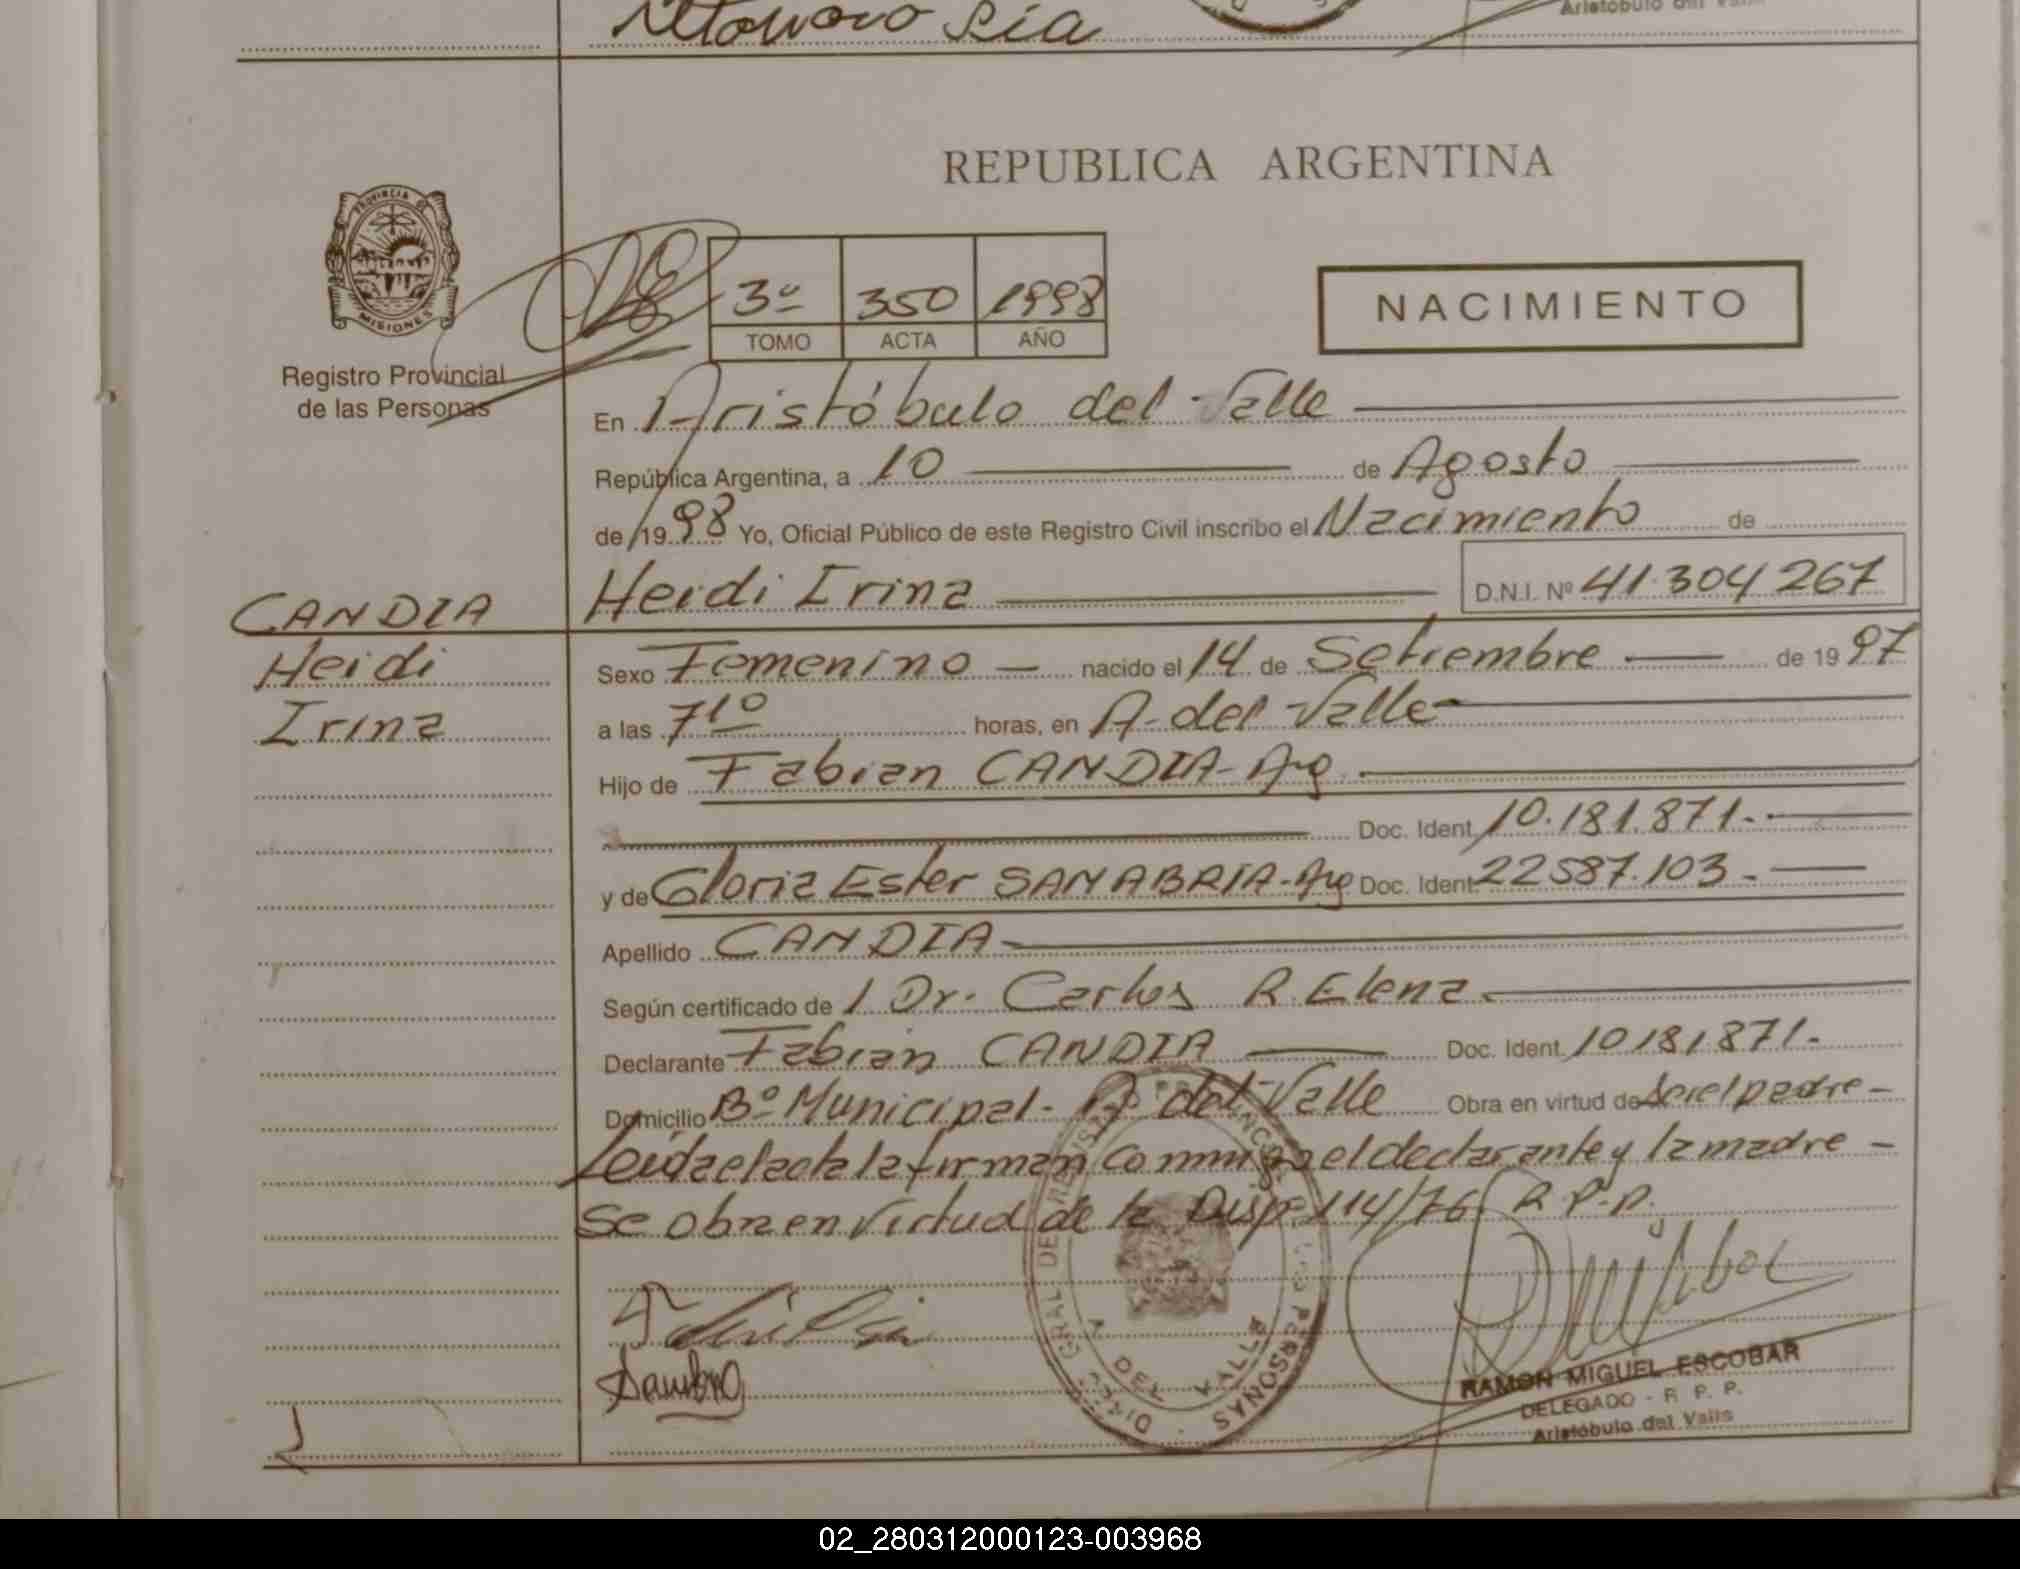 Sia
Aristóbulo del Valle
REPUBLICA ARGENTINA
PROVINCIA DE
MISIONES
Registro Provincial
de las Personas
3º 350 1998
TOMO ACTA AÑO
NACIMIENTO
En Aristóbulo del Valle
República Argentina, a 10 de Agosto
de 1998 Yo, Oficial Público de este Registro Civil inscribo el Nacimiento de
Heidi Irina D.N.I. Nº 41.304.267
CANDIA
Heidi
Irina
Sexo Femenino nacido el 14 de Setiembre de 1997
a las 7 1º horas, en A. del Valle
Hijo de Fabian CANDIA - Arg.
Doc. Ident. 10.181.871.-
y de Gloria Ester SANABRIA - Arg Doc. Ident. 22587.103.-
Apellido CANDIA
Según certificado de 1 Dr. Carlos R. Elena
Declarante Fabian CANDIA Doc. Ident. 10181871.-
Domicilio Bº Municipal - A. del Valle Obra en virtud de Ser el padre -
Leída el acta la firman conmigo el declarante y la madre -
se obra en virtud de la Disp. 114/76 R.P.P.
A. DEL VALLE
RAMON MIGUEL ESCOBAR
DELEGADO - R. P. P.
Aristóbulo del Valle
02_280312000123-003968